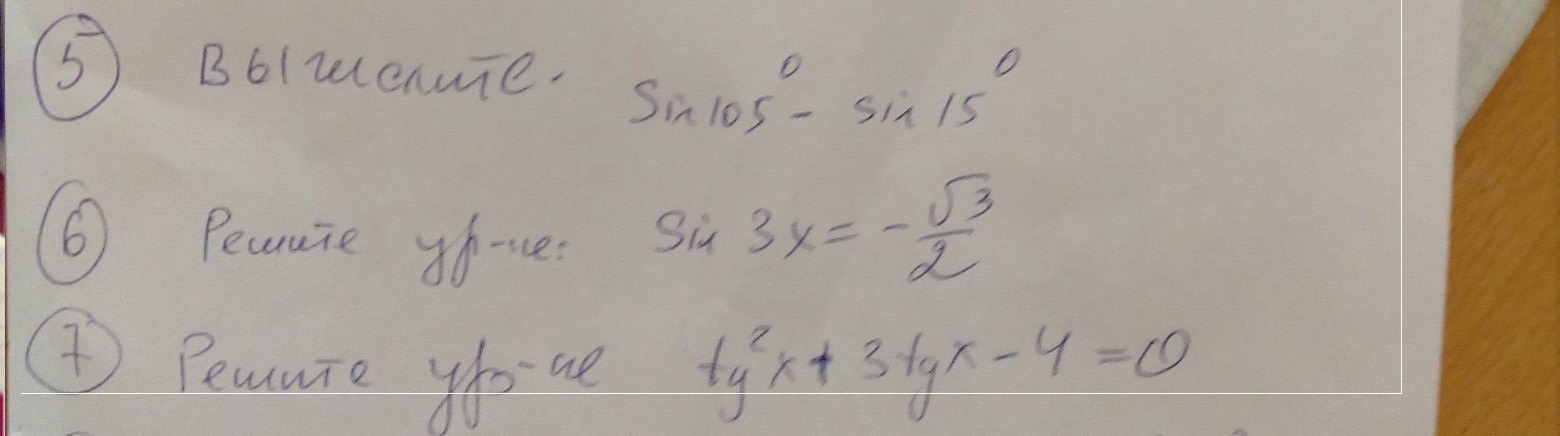 ⑤ Вычислите. Sin 105⁰ - sin 15⁰
⑥ Решите ур-не: Sin 3x = -√3/2
⑦ Решите ур-не tg²x + 3tgx - 4 = 0